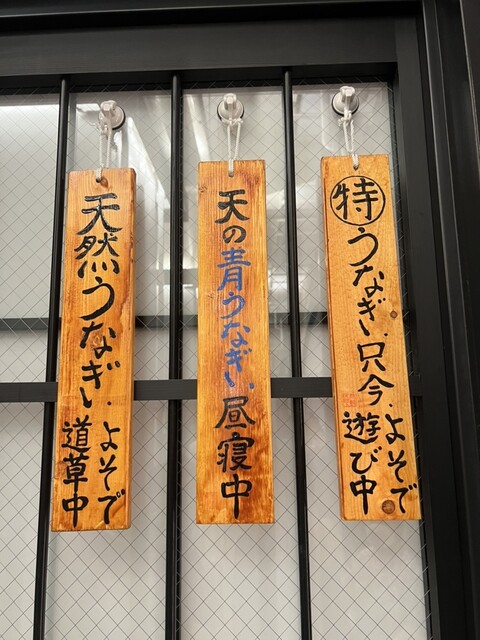 ㊕うなぎい只今
よそで
遊び中
天の青うなぎい昼寝中
天然うなぎい
よそで
道草中